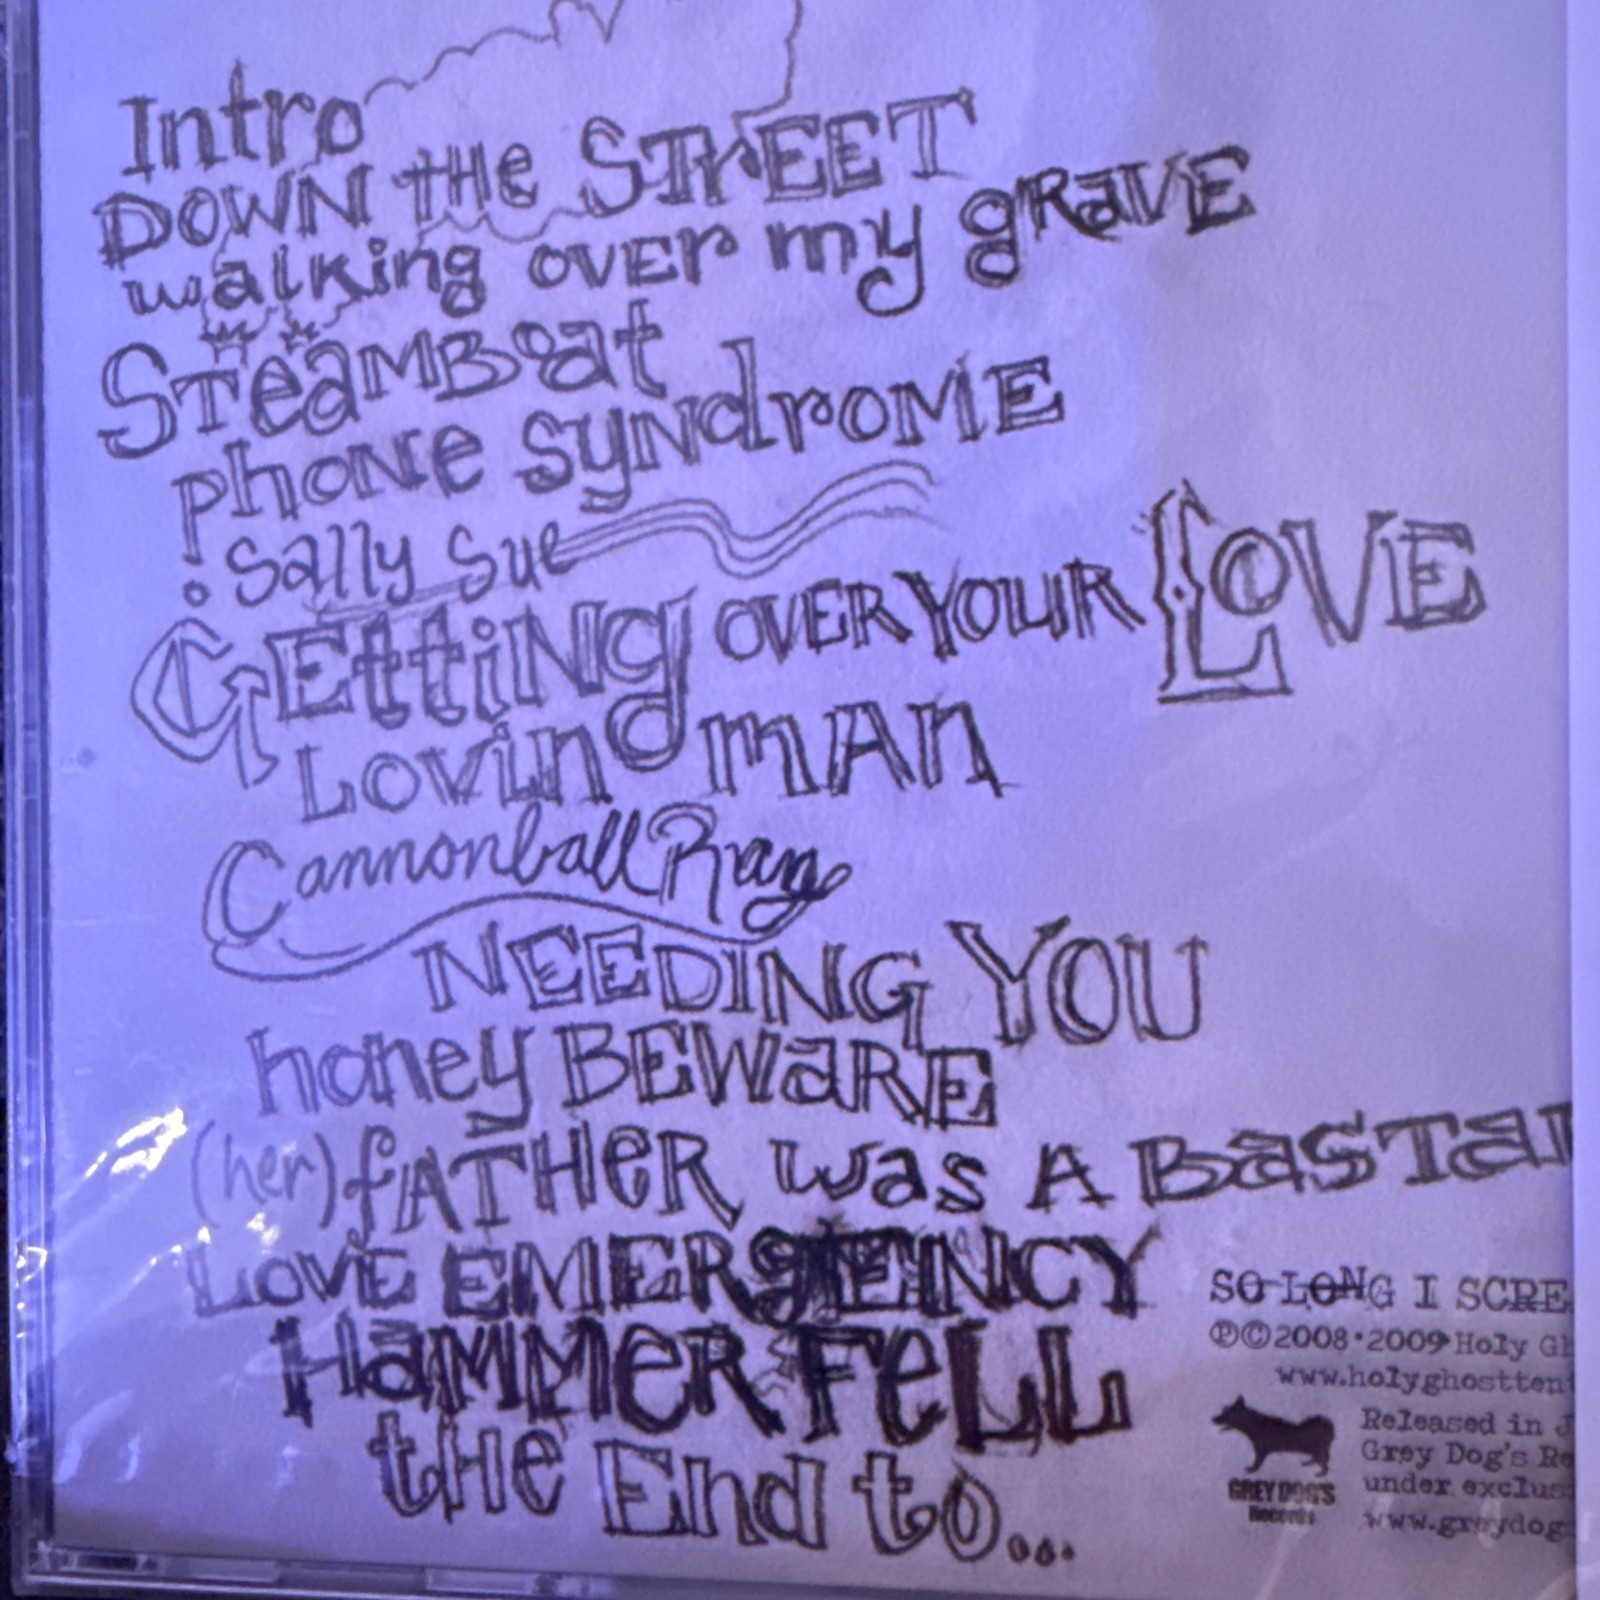 Intro
DOWN tHe STrEET
walking over my gRaVE
STeaMBoat
phoNe SyNdroME
Sally Sue
GEttiNg OVER YOUR LOVE
Lovin mAn
Cannonball Rag
NEEDING YOU
honey BEWaRE
(her) fATHeR was A BaSTaI
LovE EMERgENCY
HaMMeR FeLL
tHe End to...
SO LONG I SCRE
℗©2008·2009 Holy Gh
www.holyghostten
Released in J
Grey Dog's Re
under exclus
www.greydog
GREY DOG'S
Records